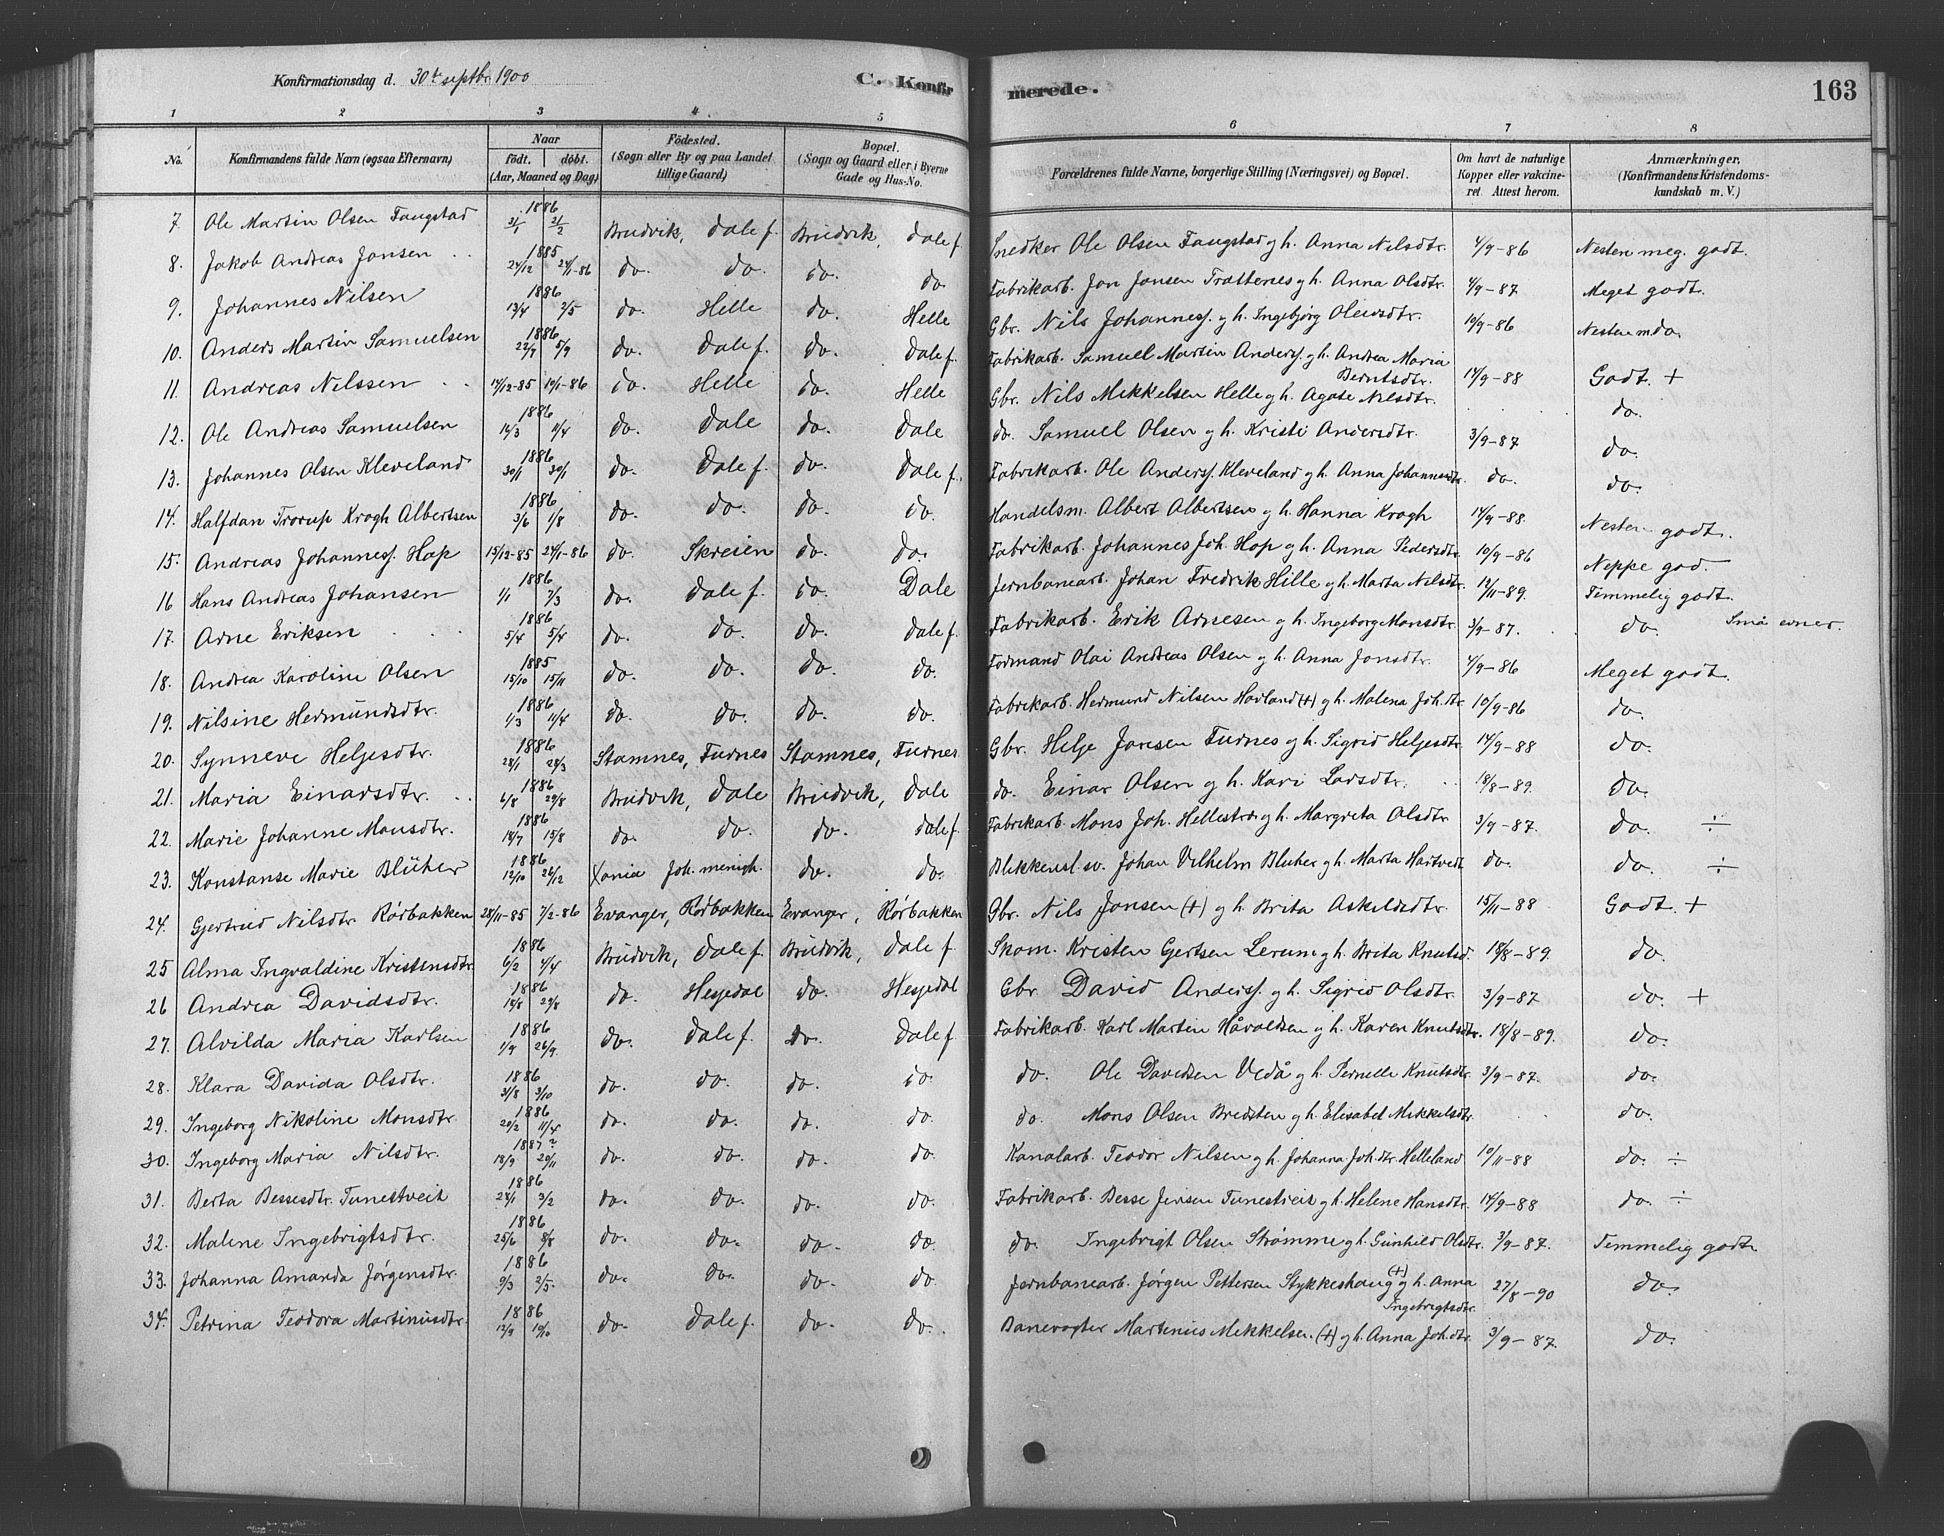 Konfirmationsdag d. 30te septbr. 1900
C. Konfirmerede.
163
1 2 3 4 5 6 7 8
No. Konfirmandens fulde Navn (ogsaa Efternavn) Naar födt. döbt. (Aar, Maaned og Dag) Födested. (Sogn eller By og paa Landet tillige Gaard) Bopæl. (Sogn og Gaard eller i Byerne Gade og Hus-No. Forældrenes fulde Navne, borgerlige Stilling (Næringsvei) og Bopæl. Om havt de naturlige Kopper eller vakcineret. Attest herom. Anmærkninger, (Konfirmandens Kristendomskundskab m. V.)
7. Ole Martin Olsen Faugstad 1886 3/1 21/2 Brudvik, Dale f. Brudvik, Dale f. Snedker Ole Olsen Faugstad y h. Anna Nilsdtr. 4/9-86 Nesten meg. godt.
8. Jakob Andreas Jonsen 1885 24/12 24/1-86 do. do. do. do Fabrikarb. Jon Jonsen Trætternes y h. Anna Olsdtr. 4/9-87 Meget godt.
9. Johannes Nilsen 1886 13/4 2/5 do. Helle do. Helle Gbr. Nils Johannesj. y h. Ingebjørg Oleivsdtr. 10/9-86 Nesten m. do.
10. Anders Martin Samuelsen 1886 22/7 5/9 do. Dale f. do. Dale f. Fabrikarb. Samuel Martin Andersj. y h. Andrea Maria Berntsdtr. 14/9-88 Godt. +
11. Andreas Nilssen 14/12-85 14/1-86 do. Helle do. Helle Gbr. Nils Mikkelsen Helle y h. Agate Nilsdtr. do.
12. Ole Andreas Samuelsen 1886 16/3 11/4 do. Dale do. Dale do. Samuel Olsen y h. Kristi Andersdtr. 3/9-87 do.
13. Johannes Olsen Kleveland 1886 30/1 30/1 do. Dale f. do. Dale f. Fabrikarb. Ole Andersj. Kleveland y h. Anna Johannesdtr. do. do.
14. Halfdan Trorup Krogh Albertsen 1886 3/6 1/8 do. do. do. do. Handelsm. Albert Albertsen y h. Hanna Krogh 14/9-88. Nesten godt.
15. Andreas Johannesj. Hop 15/12-85 24/1-86 do. Skreien do. do. Fabrikarb. Johannes Joh. Hop y h. Anna Pedersdtr. 10/9-86 Neppe god.
16 Hans Andreas Johansen 1886 1/1 7/3 do. Dale f. do. Dale Jernbanearb. Johan Fredrik Hille y h. Marta Nilsdtr. 12/11-89. Temmelig godt.
17. Arne Eriksen 1886 5/4 5/4 do. do. do. Dale f. Fabrikarb. Erik Arnesen y h. Ingeborg Monsdtr. 3/9-87. do. Små evner.
18. Andrea Karoline Olsen 1885 15/10 15/11 do. do. do. do. Formand Olai Andreas Olsen y h. Anna Jonsdtr. 4/9-86 Meget godt.
19. Nilsine Hermundsdtr. 1886 1/3 11/4 do. do. do. do. Fabrikarb. Hermund Nilsen Havland (+) y h. Malena Joh.dtr. 10/9-86 do.
20. Synneve Heljesdtr. 1886 28/1 28/3 Stamnes, Furnes Stamnes, Furnes Gbr. Helje Jonsen Furnes y h. Sigrid Heljesdtr. 14/9-88 do.
21. Maria Einarsdtr. 1886 6/8 29/8 Brudvik, Dale Brudvik, Dale do. Einar Olsen y h. Kari Larsdtr. 18/8-89. do.
22. Marie Johanne Monsdtr. 1886 18/7 15/8 do. do. do. Dale f. Fabrikarb. Mons Joh. Hellestræ y h. Margreta Olsdtr. 3/9-87. do. ÷
23. Konstanse Marie Blüher 1886 12/10 26/12 Xania Joh. menigh. do. do. Blikkensl. sv. Johan Vilhelm Bluher y h. Marta Hartvedt do. do. ÷
24. Gjertrud Nilsdtr. Rørbakken 28/11-85 7/2-86 Evanger, Rørbakken Evanger, Rørbakken Gbr. Nils Jonsen (+) y h. Brita Askildsdtr. 15/11-88 Godt. +
25 Alma Ingvaldine Kristensdtr. 1886 6/2 4/4 Brudvik, Dale f. Brudvik, Dale f. Skom. Kristen Gjertsen Lerum y h. Brita Knutsd. 18/8-89. do.
26 Andrea Davidsdtr. 1886 18/8 29/8 do. Hesjedal do. Hesjedal Gbr. David Andersj. y h. Sigrid Olsdtr. 3/9-87 do. +
27. Alvilda Maria Karlsen 1886 1/9 26/9. do. Dale f. do. Dale f. Fabrikarb. Karl Martin Håraldsen y h. Karen Knutsdtr. 18/8-89. do.
28. Klara Davida Olsdtr. 1886 31/8 3/10 do. do. do. do. do. Ole Davidsen Vedå y h. Pernille Knutsdtr. 3/9-87. do.
29. Ingeborg Nikoline Monsdtr. 1886 20/2 11/4 do. do. do. do. do. Mons Olsen Bredsten y h. Elisabet Mikkelsdtr. do.
30. Ingeborg Maria Nilsdtr. 1887? 18/9 20/11 do. do. do. do. Kanalarb. Teodor Nilsen y h. Johanna Joh.dtr. Helleland 10/11-88 do. ÷
31. Berta Bessesdtr. Tunestveit 1886 24/1 2/2 do. do. do. do. Fabrikarb. Besse Jensen Tunestveit y h. Helene Hansdtr. 14/9-88 do. ÷
32. Malene Ingebrigtsdtr. 1886 25/6 8/8 do. do. do. do. do. Ingebrigt Olsen Strømme y h. Gunhild Olsdtr. 3/9-87. Temmelig godt
33. Johanna Amanda Jørgensdtr. 1886 9/3 2/5. do. do. do. do. Jernbanearb. Jørgen Pettersen Stykkeshaug (+) y h. Anna Ingebrigtsdtr. 27/8-90 do.
34. Petrina Teodora Martinusdtr. 1886 12/9 10/10 do. Dale f. do. do. Banevogter Martinius Mikkelsen (+) y h. Anna Joh.dtr. 3/9-87. do.